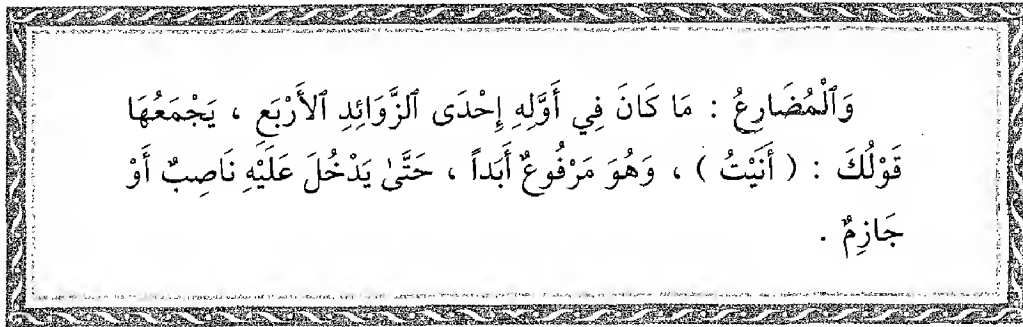 وَٱلْمُضَارِعُ : مَا كَانَ فِي أَوَّلِهِ إِحْدَى ٱلزَّوَائِدِ ٱلأَرْبَعِ ، يَجْمَعُهَا
قَوْلُكَ : ( أَنَيْتُ ) ، وَهُوَ مَرْفُوعٌ أَبَداً ، حَتَّىٰ يَدْخُلَ عَلَيْهِ نَاصِبٌ أَوْ
جَازِمٌ .